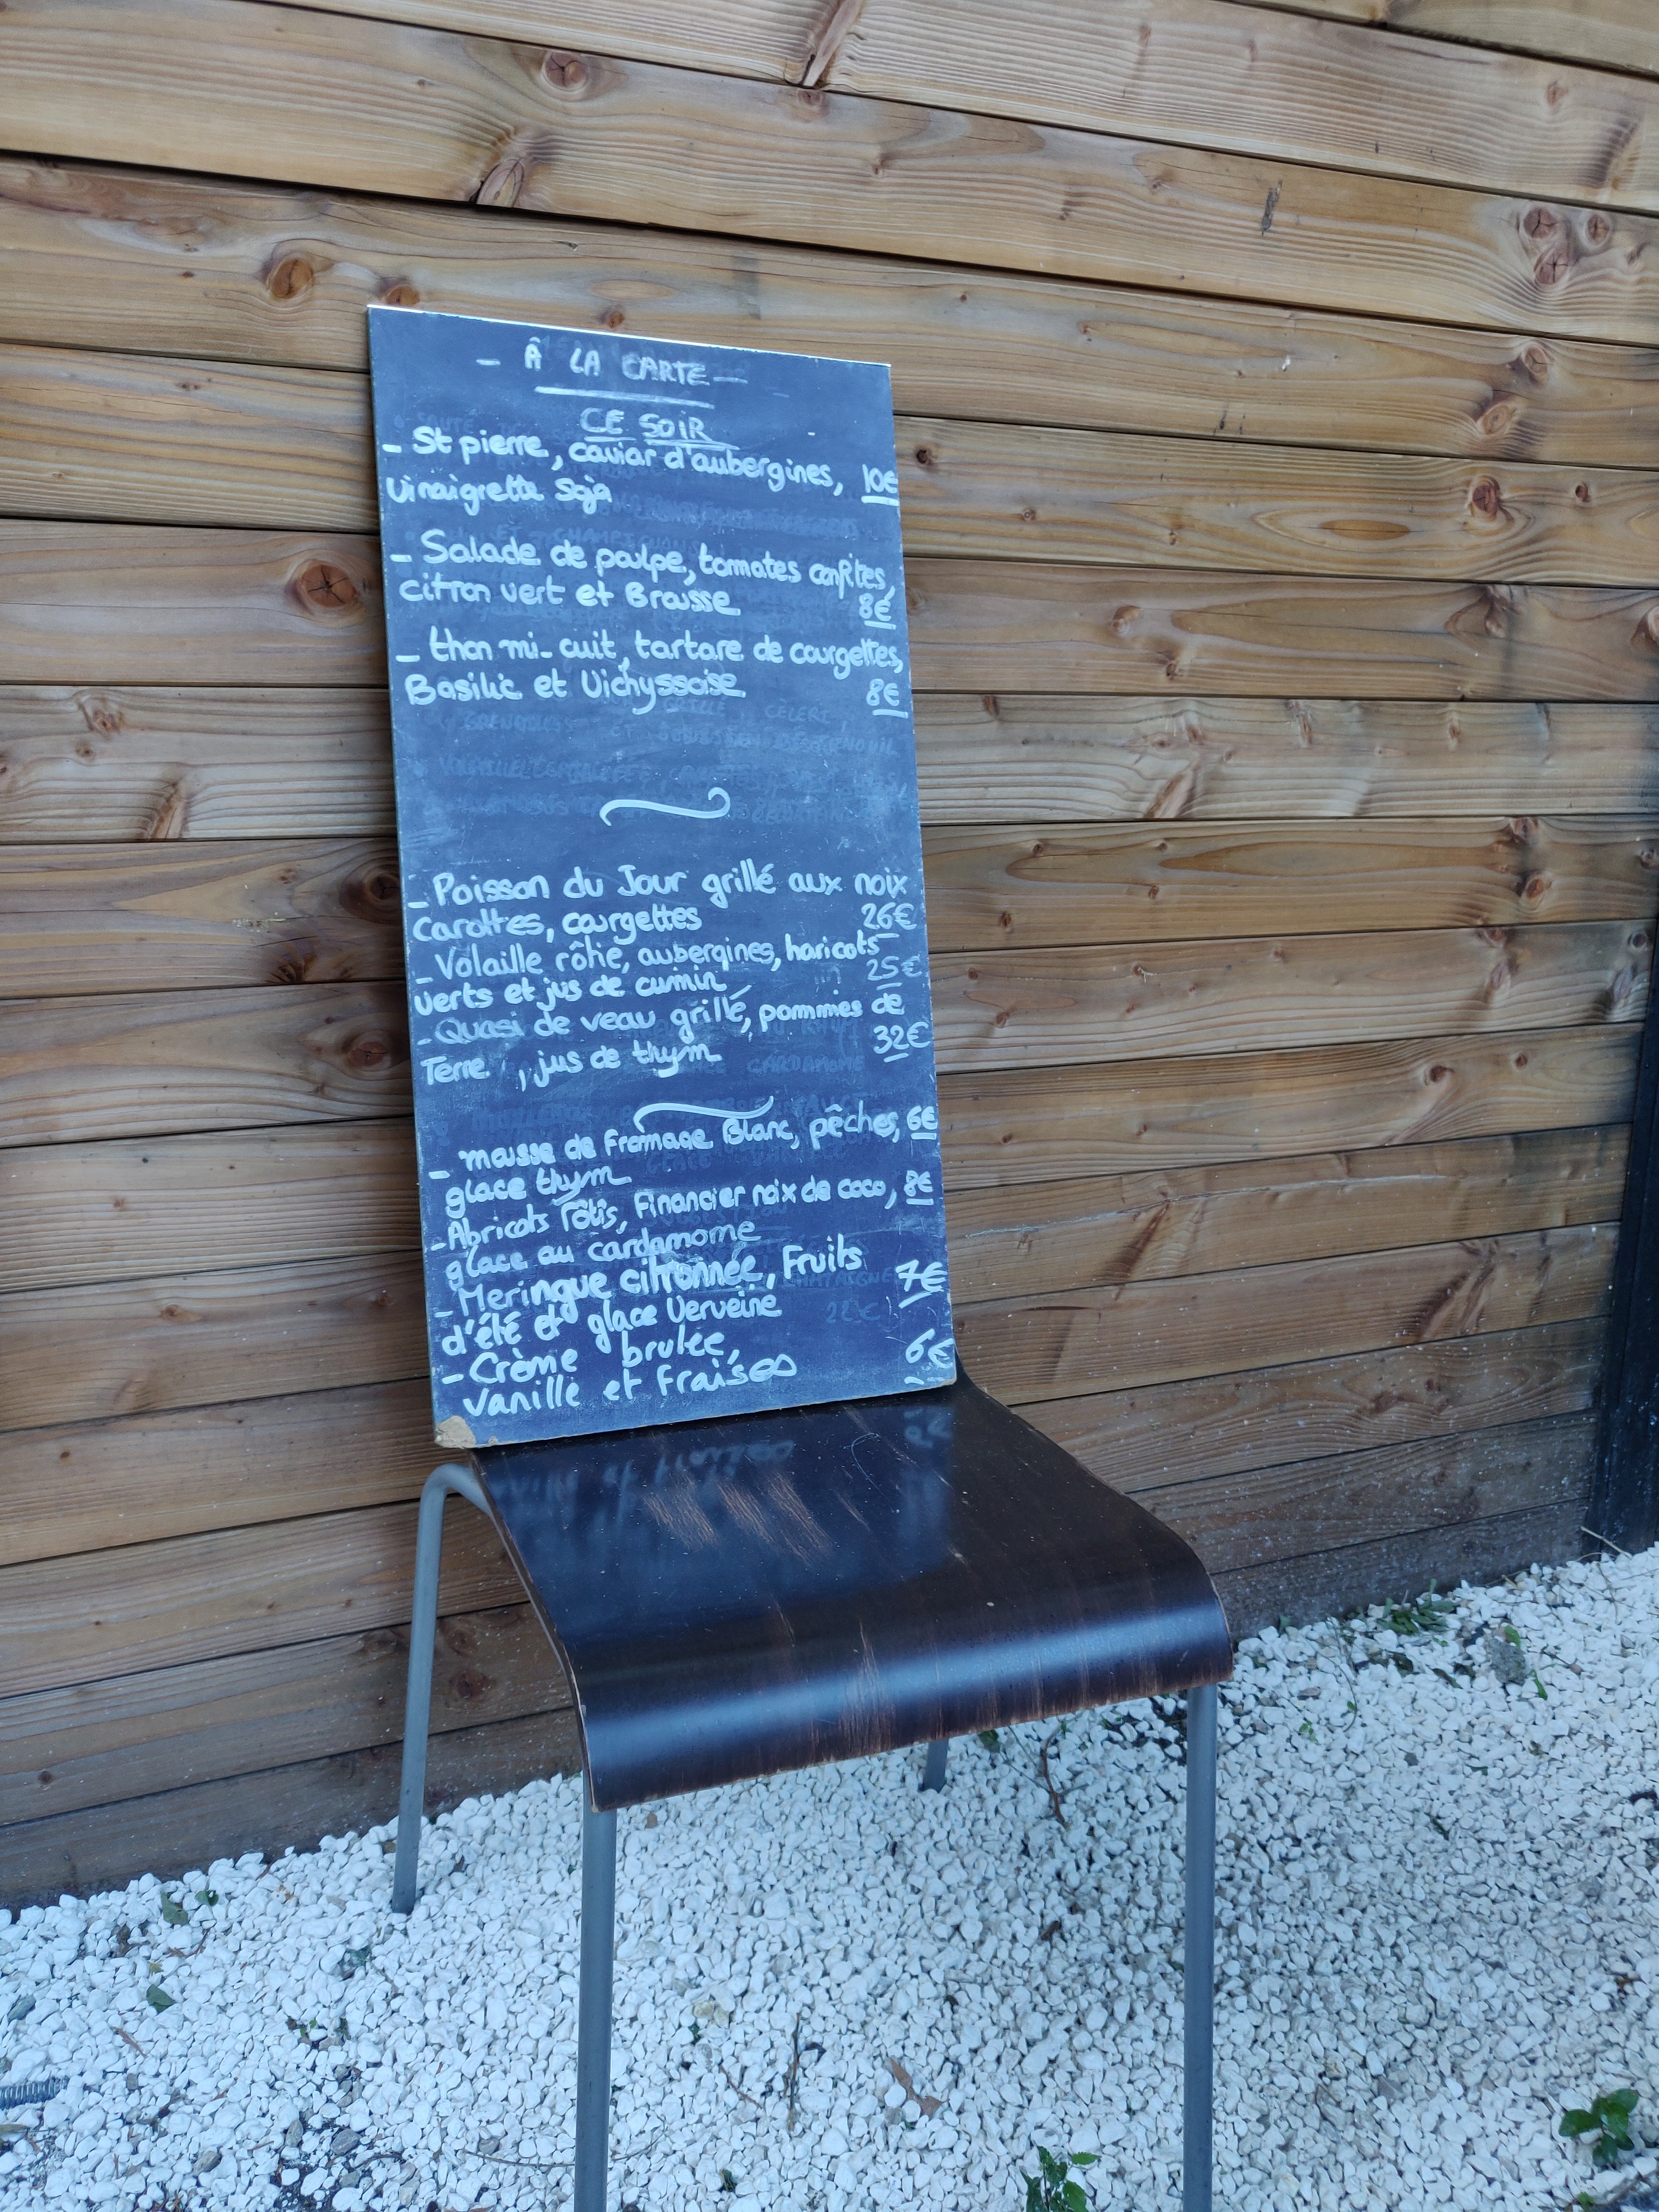 - À LA CARTE -
CE SOIR
- St pierre, caviar d'aubergines, 10€
Vinaigrette Soja
- Salade de poulpe, tomates confites,
citron vert et Brousse 8€
- thon mi-cuit, tartare de courgettes,
Basilic et Vichyssoise 8€
- Poisson du Jour grillé aux noix
carottes, courgettes 26€
- Volaille rôtie, aubergines, haricots
verts et jus de cumin 25€
- Quasi de veau grillé, pommes de
Terre , jus de thym 32€
- mousse de Fromage Blanc, pêches, 6€
glace thym
- Abricots rôtis, Financier noix de coco, 8€
glace au cardamome
- Meringue citronnée, Fruits 7€
d'été et glace Verveine
- Crème brulée, 6€
vanille et Fraises